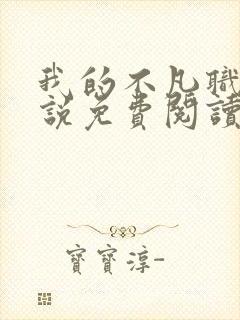 我的不凡職
說免費閱讀
寶寶淳-